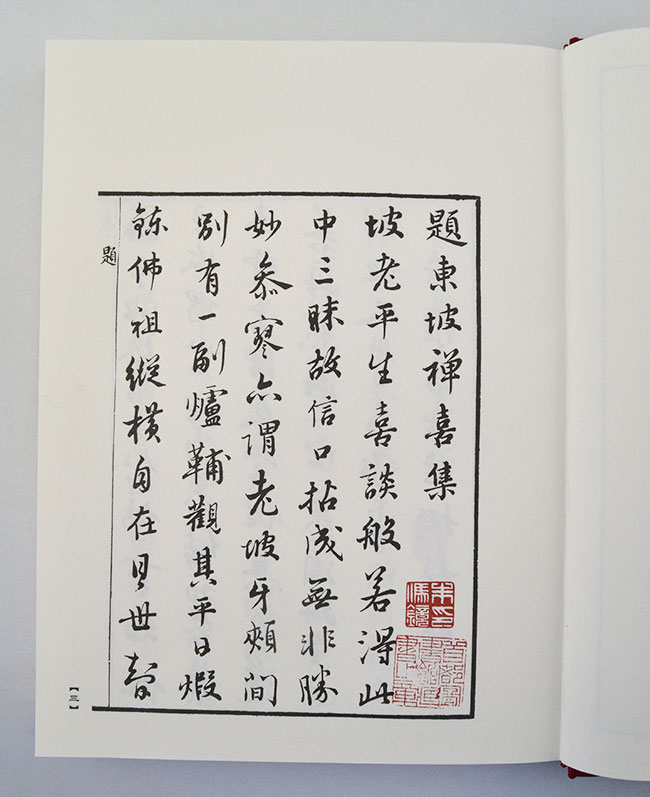 題東坡禅喜集
坡老平生喜談般若得此
中三昧故信口拈成無非勝
妙叅寥亦謂老坡牙頰間
別有一副爐鞴觀其平日煆
錬佛祖縱橫自在具世智
題
【三】